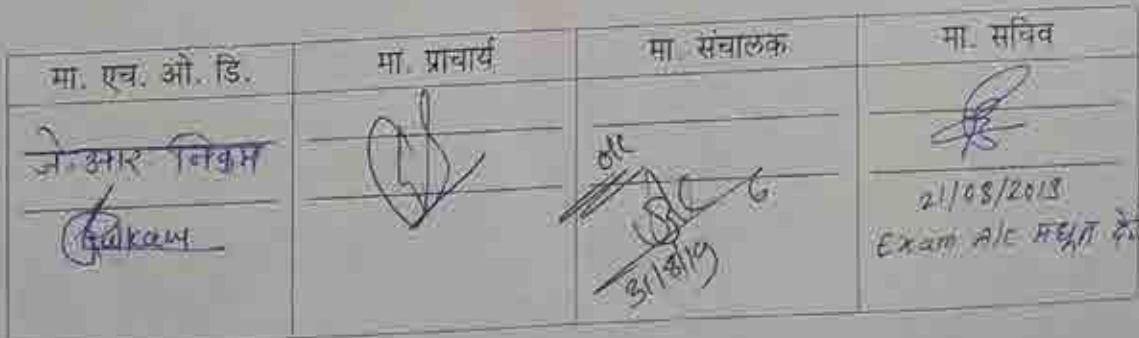 मा. एच. ओ. डि.
मा. प्राचार्य
मा. संचालक
मा. सचिव
जे. आर निकम
31/8/19
21/08/2019
Exam A/C मधून